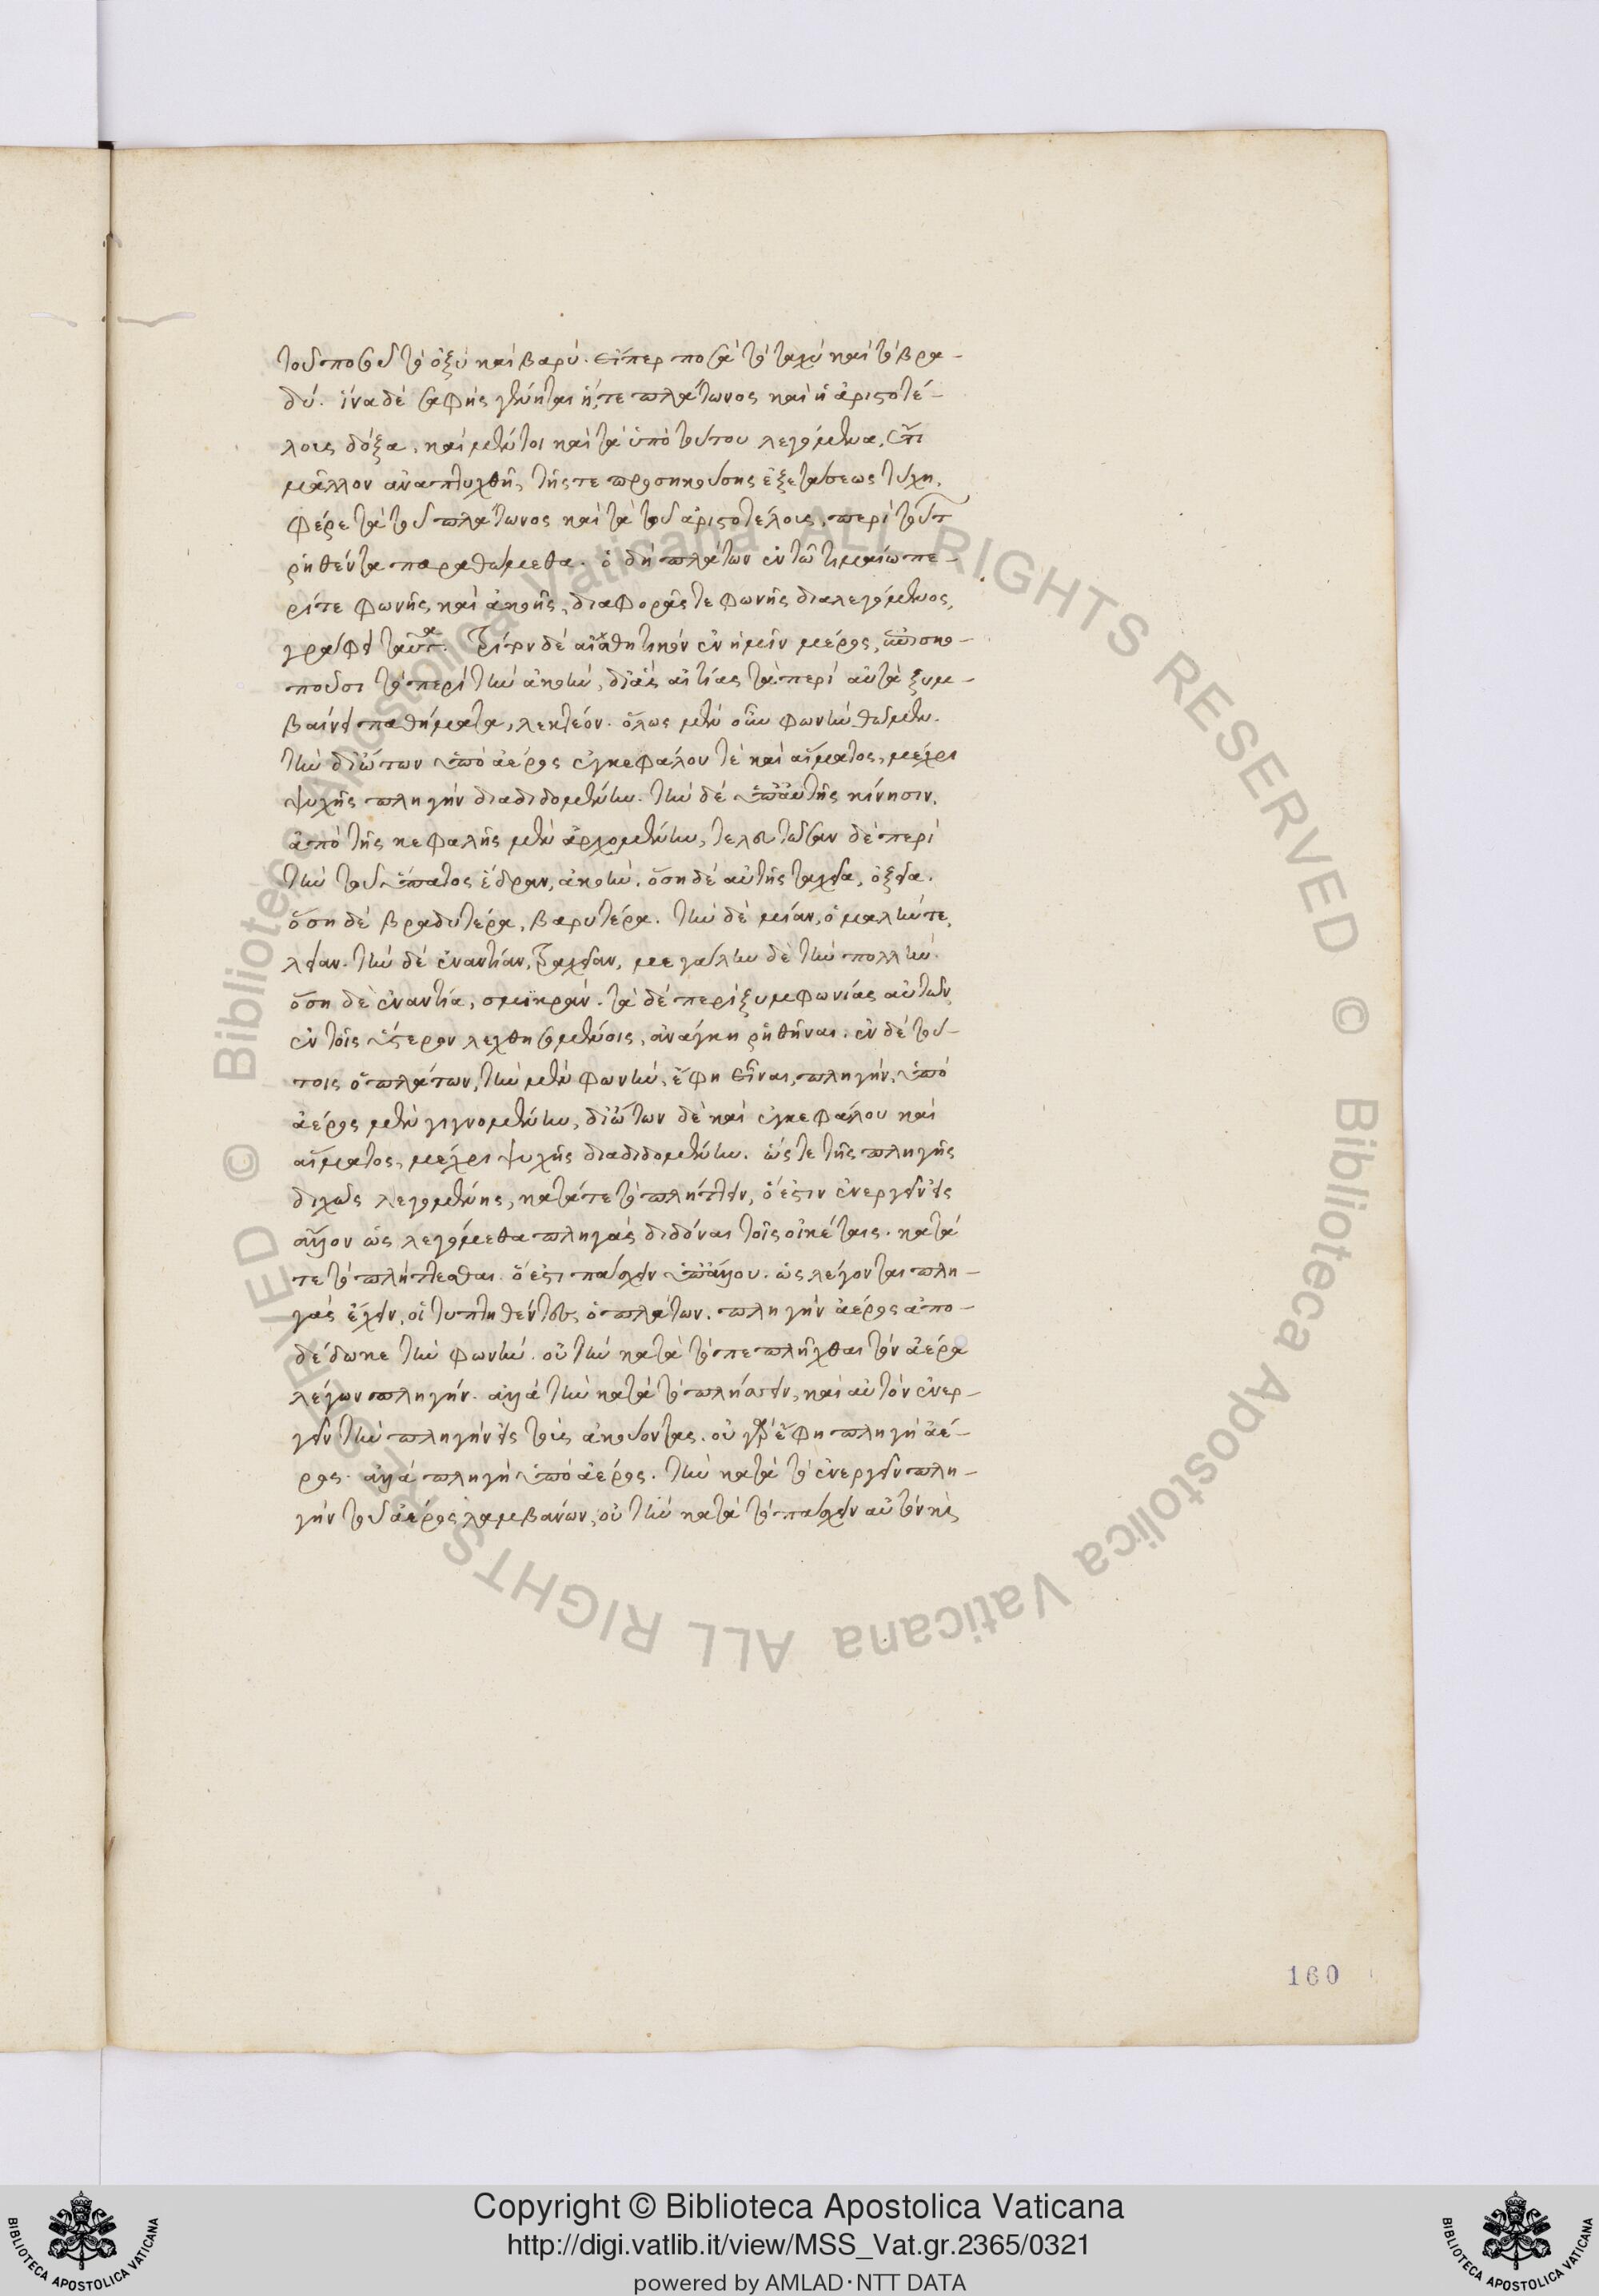 τοῦ ποσοῦ τὸ ὀξὺ καὶ βαρύ. εἴπερ ποσὰ τὸ ταχὺ καὶ τὸ βρα-
δύ. ἵνα δὲ σαφὴς γένηται ἥ, τε πλάτωνος καὶ ἡ ἀριστοτέ-
λους δόξα, καὶ μέντοι καὶ τὰ ὑπὸ τούτου λεγόμενα, ἔτι
μᾶλλον ἀναπτυχθῇ, τῆς τε προσηκούσης ἐξετάσεως τύχῃ,
φέρε τὰ τοῦ πλάτωνος καὶ τὰ τοῦ ἀριστοτέλους, περὶ τούτ
ρηθέντα παραθώμεθα. ὁ δὴ πλάτων ἐν τῷ τιμαίῳ πε-
ρί τε φωνῆς καὶ ἀκοῆς, διαφορᾶς τε φωνῆς διαλεγόμενος,
γράφει ταῦτα. Τρίτον δὲ αἰσθητικὸν ἐν ἡμῖν μέρος, ἐπισκο-
ποῦσι τὸ περὶ τὴν ἀκοὴν, δι' ἃς αἰτίας τὰ περὶ αὐτὰ ξυμ-
βαίνει παθήματα, λεκτέον. ὅλως μὲν οὖν φωνὴν θῶμεν.
τὴν δι' ὤτων ὑπὸ ἀέρος ἐγκεφάλου τὲ καὶ αἵματος, μέχρι
ψυχῆς πληγὴν διαδιδομένην. τὴν δὲ ὑπ' αὐτῆς κίνησιν,
ἀπὸ τῆς κεφαλῆς μὲν ἀρχομένην, τελευτῶσαν δὲ περὶ
τὴν τοῦ ἥπατος ἕδραν, ἀκοήν. ὅση δὲ αὐτῆς ταχεῖα, ὀξεῖα.
ὅση δὲ βραδυτέρα, βαρυτέρα. τὴν δὲ μίαν, ὁμαλήν τε,
λείαν. τὴν δὲ ἐναντίαν, τραχεῖαν, μεγάλην δὲ τὴν πολλήν.
ὅση δὲ ἐναντία, σμικράν. τὰ δὲ περὶ ξυμφωνίας αὐτῶν
ἐν τοῖς ὕστερον λεχθησομένοις, ἀνάγκη ρηθῆναι. ἐν δὲ τού-
τοις ὁ πλάτων, τὴν μὲν φωνὴν, ἔφη εἶναι, πληγὴν, ὑπὸ
ἀέρος μὲν γιγνομένην, δι' ὤτων δὲ καὶ ἐγκεφάλου καὶ
αἵματος, μέχρι ψυχῆς διαδιδομένην. ὥς τε τῆς πληγῆς
διχῶς λεγομένης, κατά τε τὸ πλήττειν, ὅ ἐστιν ἐνεργεῖν εἰς
ἄλλον ὡς λεγόμεθα πληγὰς διδόναι τοῖς οἰκέταις. κατά
τε τὸ πλήττεσθαι. ὅ ἐστι πάσχειν ὑπ' ἄλλου. ὡς λέγονται πλη-
γὰς ἔχειν, οἱ τυπτηθέντες, ὁ πλάτων. πληγὴν ἀέρος ἀπο-
δέδωκε τὴν φωνήν. οὐ τὴν κατὰ τὸ πεπλῆχθαι τὸν ἀέρα
λέγων πληγήν. ἀλλὰ τὴν κατὰ τὸ πλήσσειν, καὶ αὐτὸν ἐνερ-
γεῖν τὴν πληγὴν εἰς τοὺς ἀκούοντας. οὐ γὰρ ἔφη πληγὴ ἀέ-
ρος. ἀλλὰ πληγὴ ὑπὸ ἀέρος. τὴν κατὰ τὸ ἐνεργεῖν πλη-
γὴν τοῦ ἀέρος λαμβάνων, οὐ τὴν κατὰ τὸ πάσχειν αὐτὸν καὶ
160
Copyright © Biblioteca Apostolica Vaticana
http://digi.vatlib.it/view/MSS_Vat.gr.2365/0321
powered by AMLAD·NTT DATA
BIBLIOTECA APOSTOLICA VATICANA
BIBLIOTECA APOSTOLICA VATICANA
© Biblioteca Apostolica Vaticana ALL RIGHTS RESERVED
© Biblioteca Apostolica Vaticana ALL RIGHTS RESERVED